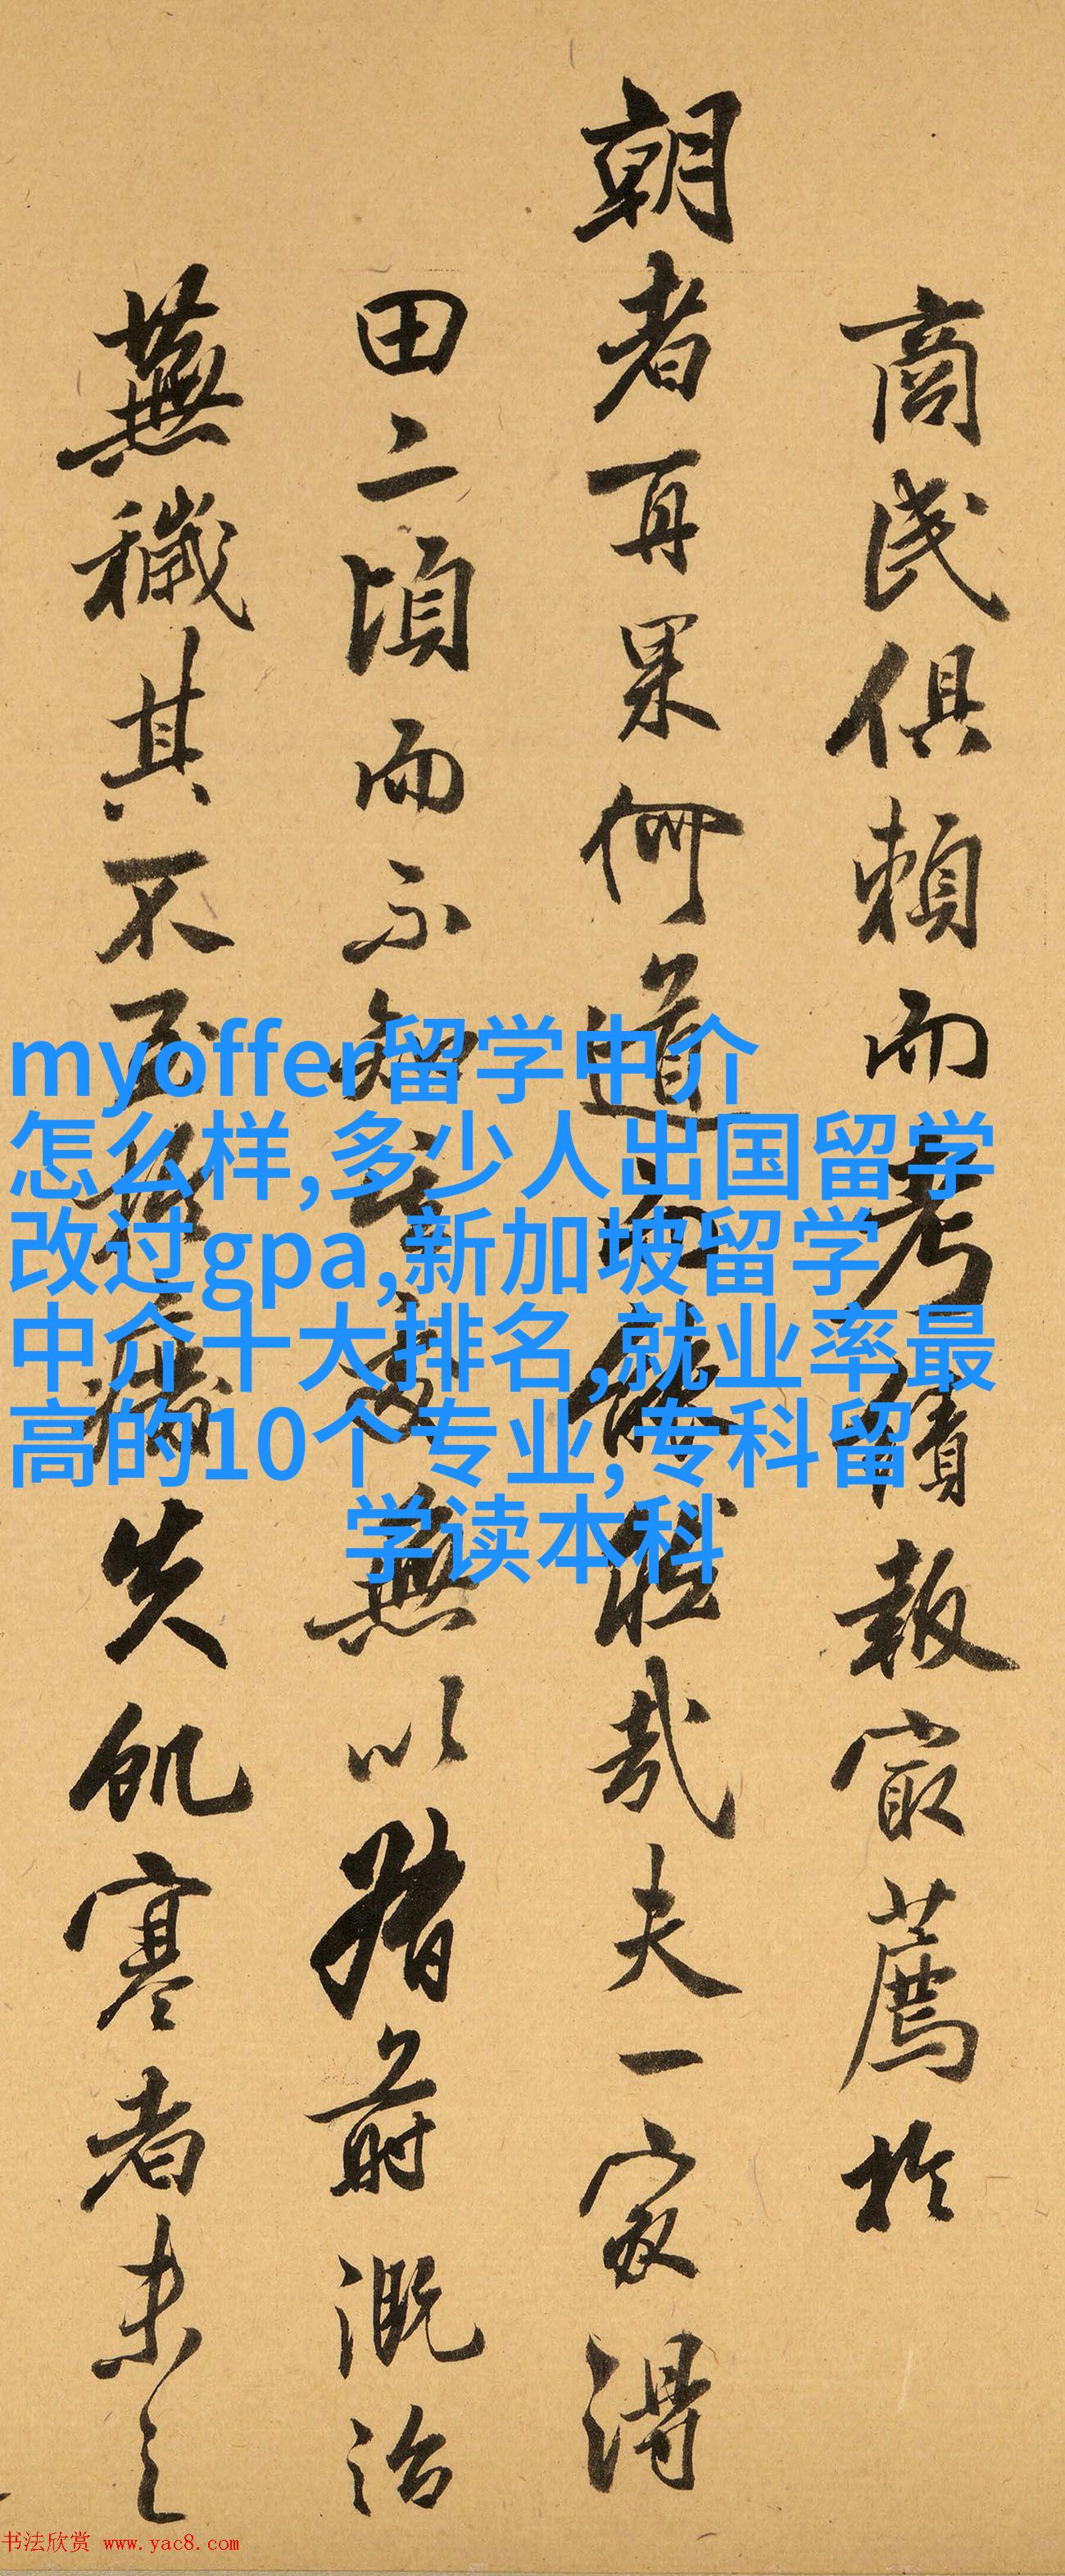 商民俱赖而考績報最薦於
朝者再果何道而能職哉夫一家得
田二頃而不知玄處無以猪前溉治
蕪穢其不至捐瘠失飢寒者未之
myoffer留学中介
怎么样,多少人出国留学
改过gpa,新加坡留学
中介十大排名,就业率最
高的10个专业,专科留
学读本科
书法欣赏 www.yac8.com